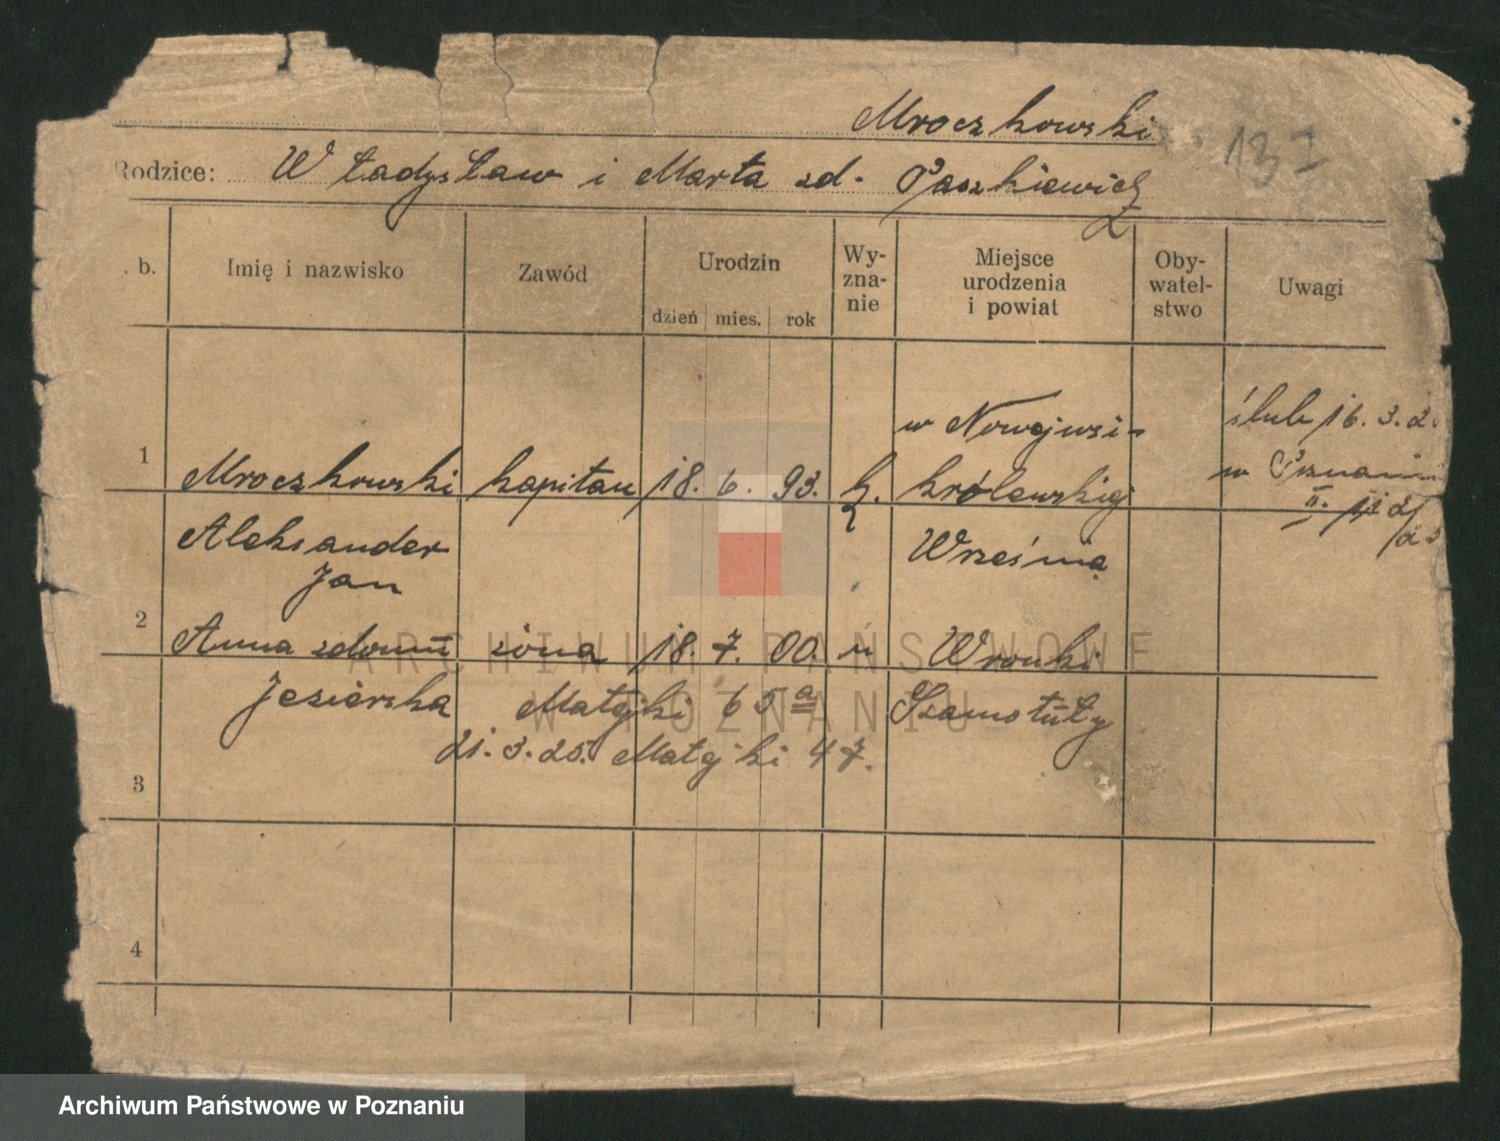 Mroczkowski
137
Rodzice: Władysław i Marta zd. Paszkiewicz
. b. Imię i nazwisko Zawód Urodzin dzień mies. rok Wy-zna-nie Miejsce urodzenia i powiat Oby-watel-stwo Uwagi
w Nowejwsi- ślub 16. 3. 2
1 Mroczkowski kapitan 18. 6. 93. k. królewskiej w Poznaniu
II.
Aleksander Wrześnią
Jan
2 Anna zdomu żona 18. 7. 00. " Wronki
Jezierska Matejki 65 a Szamotuły
21. 3. 25. Matejki 47.
3
4
ARCHIWUM PAŃSTWOWE
W POZNANIU
Archiwum Państwowe w Poznaniu